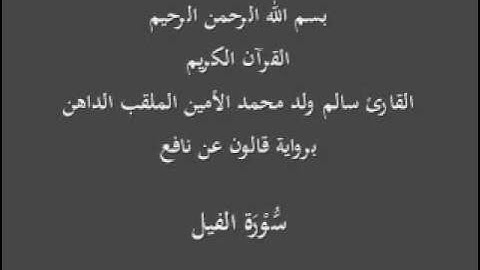 بسم الله الرحمن الرحيم
القرآن الكريم
القارئ سالم ولد محمد الأمين الملقب الداهن
برواية قالون عن نافع
سُّوْرَة الفيل